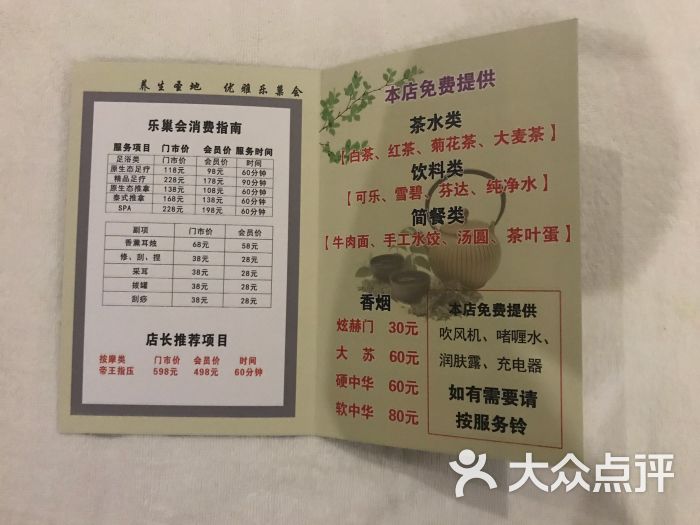 养生圣地 优雅乐巢会
乐巢会消费指南
服务项目 门市价 会员价 服务时间
足浴类 门市价 会员价 时间
原生态足疗 118元 98元 60分钟
精品足疗 228元 178元 90分钟
原生态推拿 138元 108元 60分钟
泰式推拿 168元 138元 60分钟
SPA 228元 198元 60分钟
副项 门市价 会员价
香薰耳烛 68元 58元
修、刮、捏 38元 28元
采耳 38元 28元
拔罐 38元 28元
刮痧 38元 28元
店长推荐项目
按摩类 门市价 会员价 时间
帝王指压 598元 498元 60分钟
本店免费提供
茶水类
【白茶、红茶、菊花茶、大麦茶】
饮料类
【可乐、雪碧、芬达、纯净水】
简餐类
【牛肉面、手工水饺、汤圆、茶叶蛋】
香烟
炫赫门 30元
大苏 60元
硬中华 60元
软中华 80元
本店免费提供
吹风机、啫喱水、
润肤露、充电器
如有需要请
按服务铃
大众点评